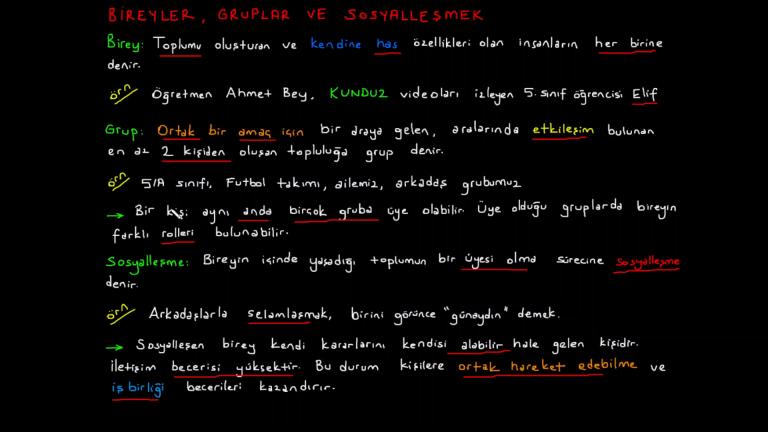 BİREYLER, GRUPLAR VE SOSYALLEŞMEK
Birey: Toplumu oluşturan ve kendine has özellikleri olan insanların her birine
denir.
örn Öğretmen Ahmet Bey, KUNDUZ videoları izleyen 5. sınıf öğrencisi Elif
Grup: Ortak bir amaç için bir araya gelen, aralarında etkileşim bulunan
en az 2 kişiden oluşan topluluğa grup denir.
örn 5/A sınıfı, Futbol takımı, ailemiz, arkadaş grubumuz
→ Bir kişi aynı anda birçok gruba üye olabilir. Üye olduğu gruplarda bireyin
farklı rolleri bulunabilir.
Sosyalleşme: Bireyin içinde yaşadığı toplumun bir üyesi olma sürecine sosyalleşme
denir.
örn Arkadaşlarla selamlaşmak, birini görünce "günaydın" demek.
→ Sosyalleşen birey kendi kararlarını kendisi alabilir hale gelen kişidir.
İletişim becerisi yüksektir. Bu durum kişilere ortak hareket edebilme ve
iş birliği becerileri kazandırır.